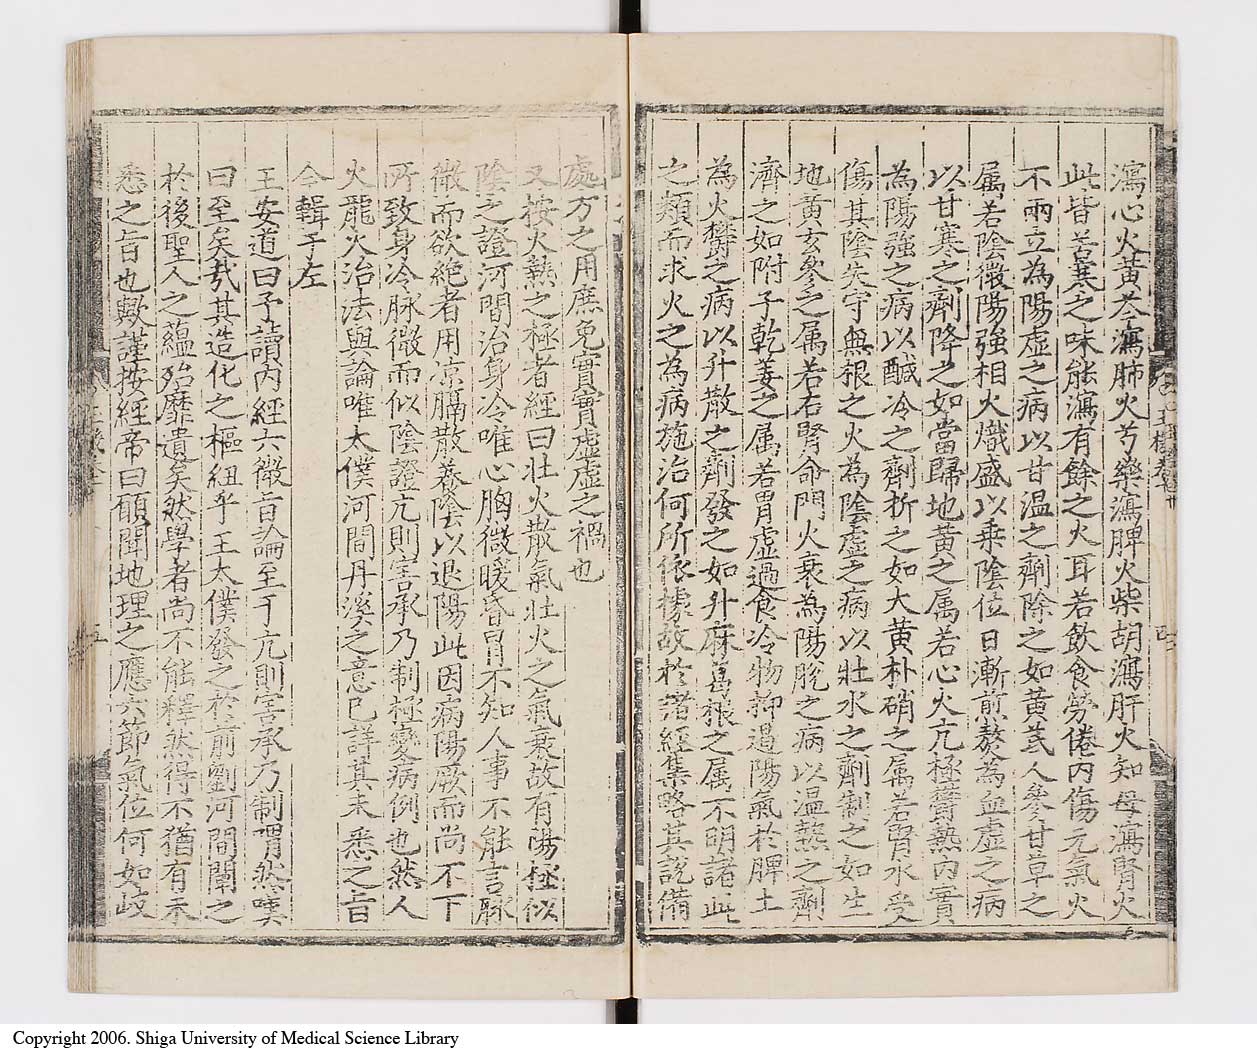 瀉心火黃芩瀉肺火芍藥瀉脾火柴胡瀉肝火知母瀉腎火
此皆苦寒之味能瀉有餘之火耳若飲食勞倦內傷元氣火
不兩立為陽虛之病以甘温之劑除之如黃芪人參甘草之
属若陰微陽強相火熾盛以乗陰位日漸煎熬為血虛之病
以甘寒之劑降之如當歸地黃之属若心火亢極欝熱內實
為陽强之病以醎冷之劑折之如大黃朴硝之属若腎水受
傷其陰失守無根之火為陰虛之病以壯水之劑制之如生
地黃玄參之属若右腎命門火衰為陽脫之病以温熱之劑
濟之如附子乾姜之属若胃虛過食冷物抑遏陽氣於脾土
為火欝之病以升散之劑發之如升麻葛根之属不明諸此
之類而求火之為病施治何所依據故於諸經集略其說備
處方之用庶免實實虛虛之禍也
又按火熱之極者經曰壯火散氣壯火之氣衰故有陽極似
陰之證河間治身冷唯心胸微暖昏冒不知人事不能言脉
微而欲絶者用凉膈散養陰以退陽此因病陽厥而尚不下
所致身冷脉微而似陰證亢則害承乃制極變病例也然人
火龍火治法與論唯太僕河間丹溪之意已詳其未悉之旨
今輯于左
王安道曰予讀內經六微旨論至于亢則害承乃制喟然嘆
曰至矣哉其造化之樞紐乎王太僕發之於前劉河間闡之
於後聖人之蘊殆靡遺矣然學者尚不能釋然得不猶有未
悉之旨也歟謹按經帝曰願聞地理之應六節氣位何如岐
Copyright 2006. Shiga University of Medical Science Library